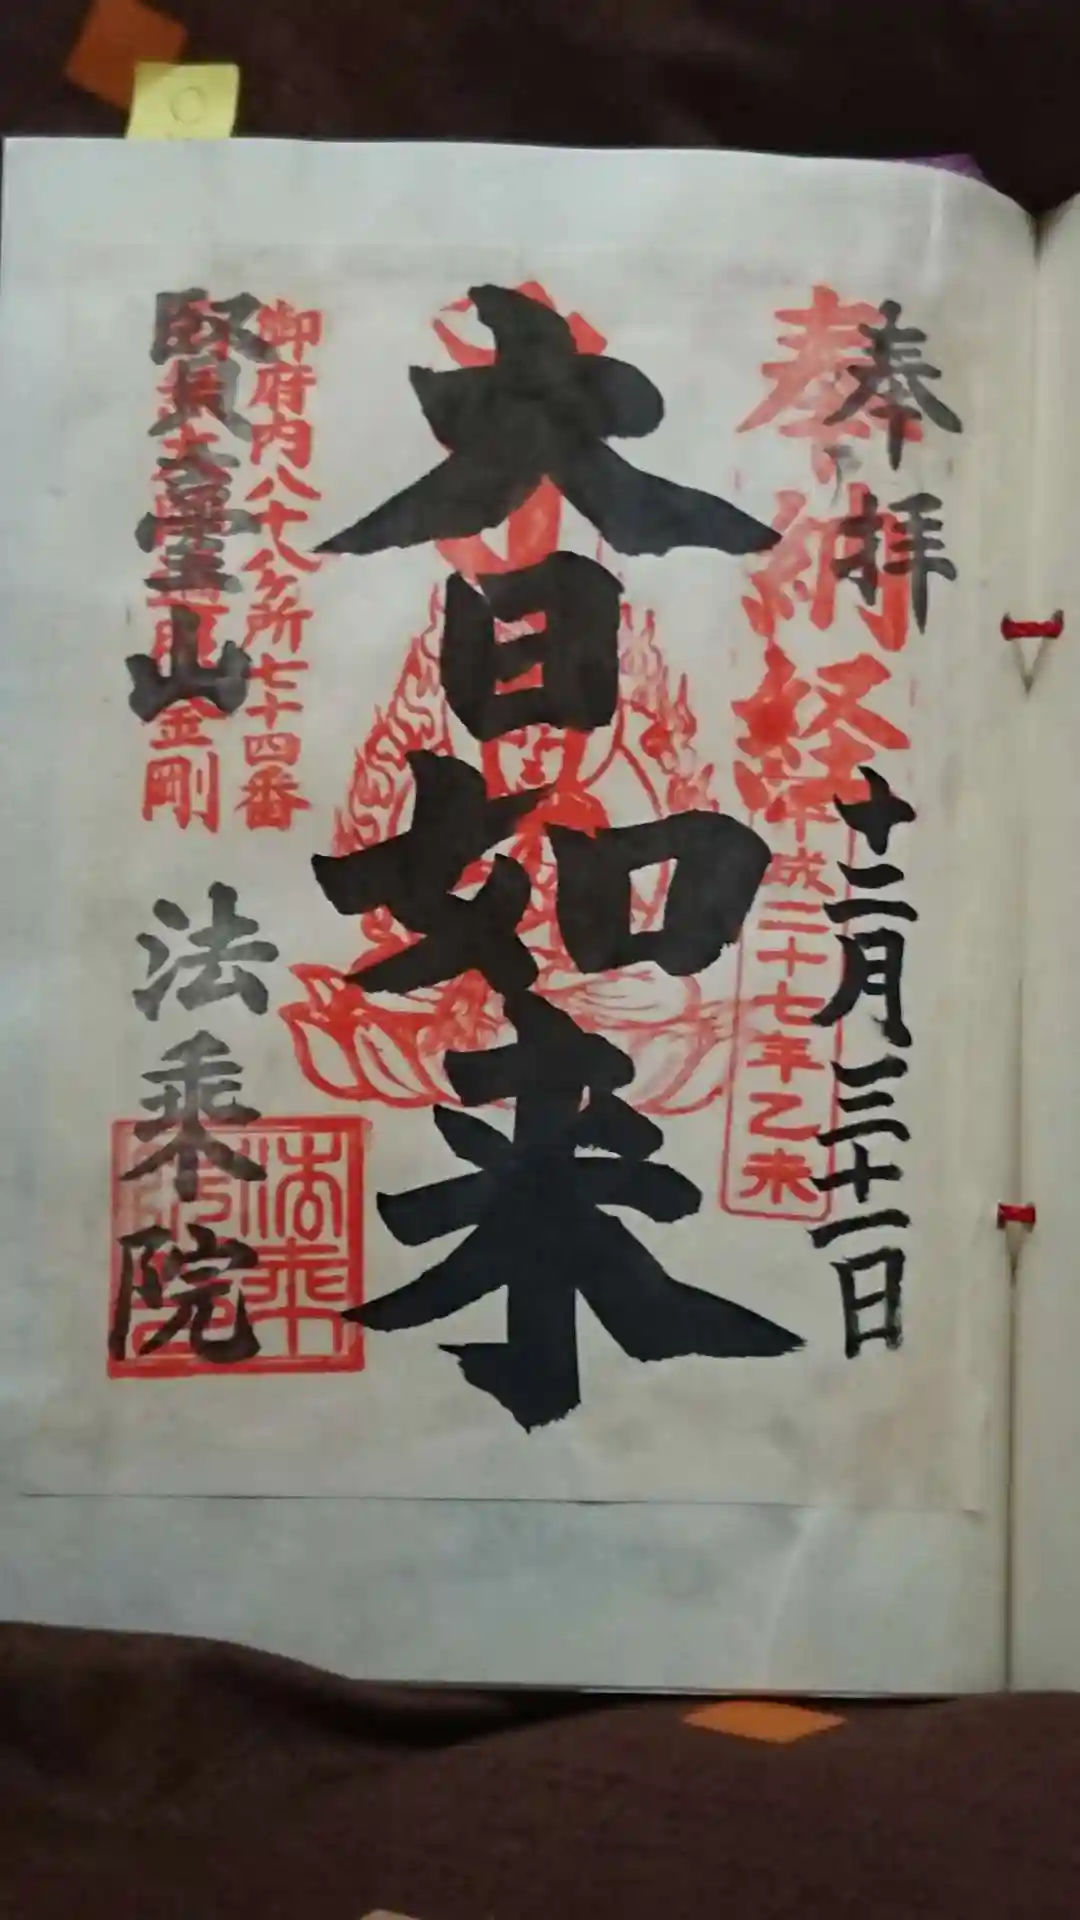 奉拝
十二月三十一日
奉納経
平成二十七年乙未
大日如来
御府内八十八ヶ所七十四番
南無大師遍照金剛
賢臺山
法乗院